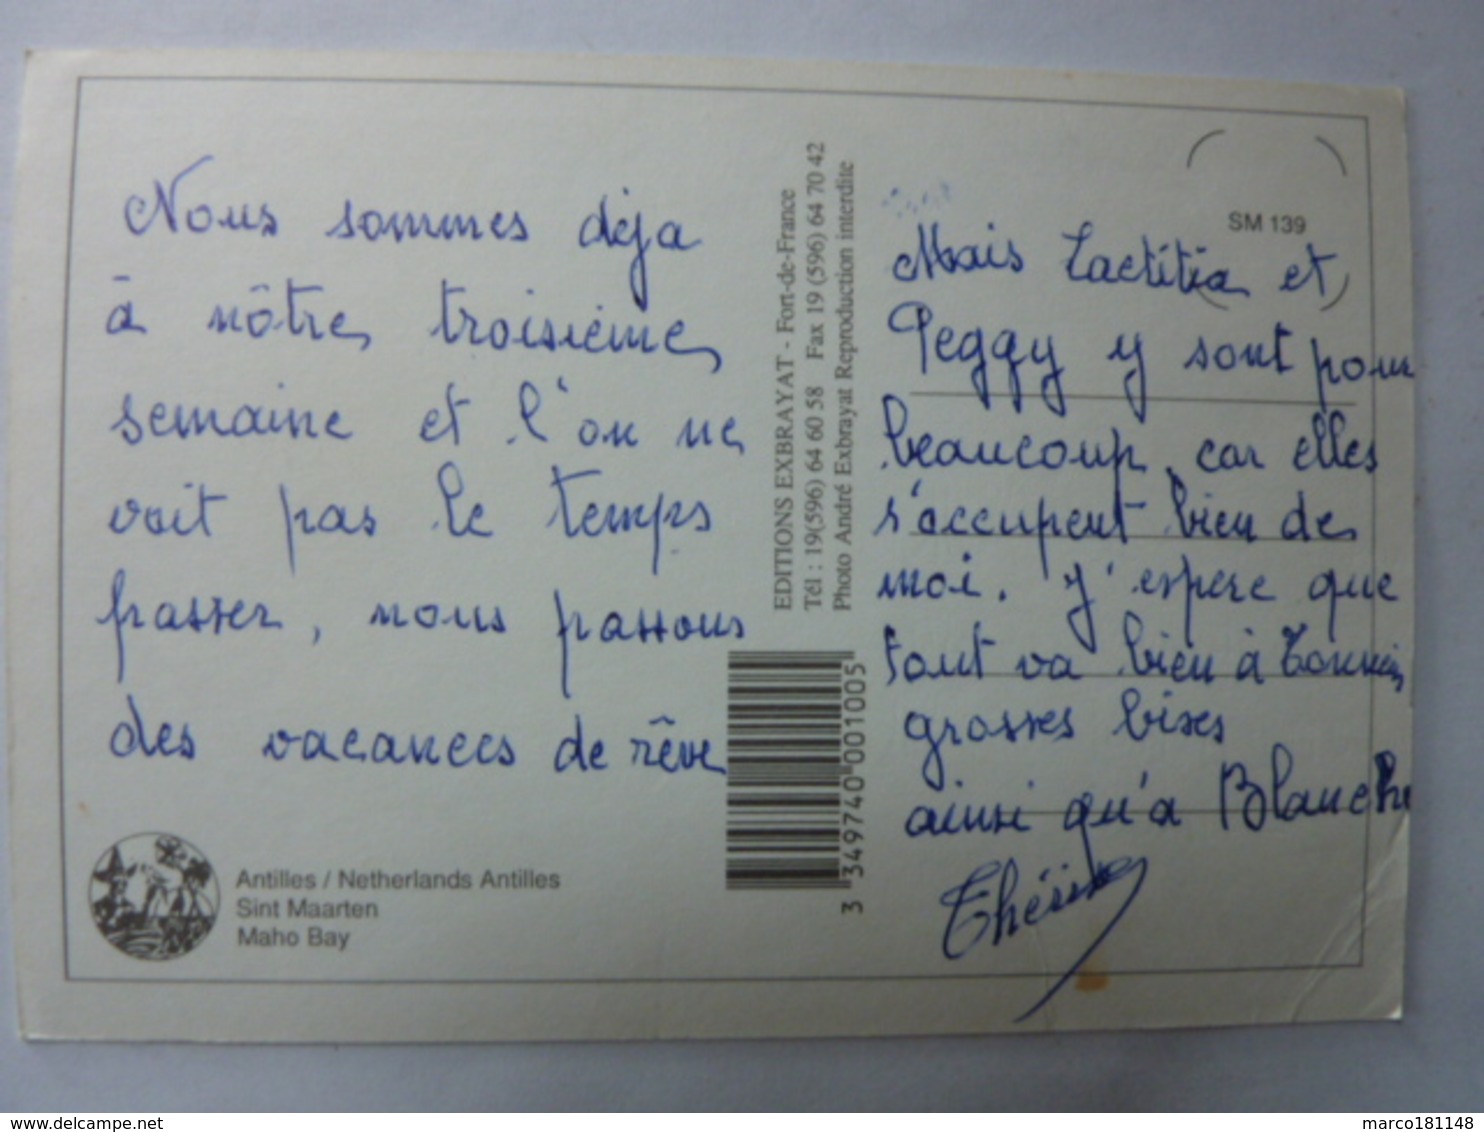 Nous sommes déja
à nôtre troisième
semaine et l'on ne
voit pas le temps
passer, nous passons
des vacances de rêve
Antilles / Netherlands Antilles
Sint Maarten
Maho Bay
EDITIONS EXBRAYAT - Fort-de-France
Tél : 19(596) 64 60 58 Fax 19 (596) 64 70 42
Photo André Exbrayat Reproduction interdite
3 349740 001005
SM 139
Mais Laetitia et
Peggy y sont pour
beaucoup, car elles
s'occupent bien de
moi. J'espere que
tout va bien à
grosses bises
ainsi qu'a Blanche
delcampe.net
marco181148